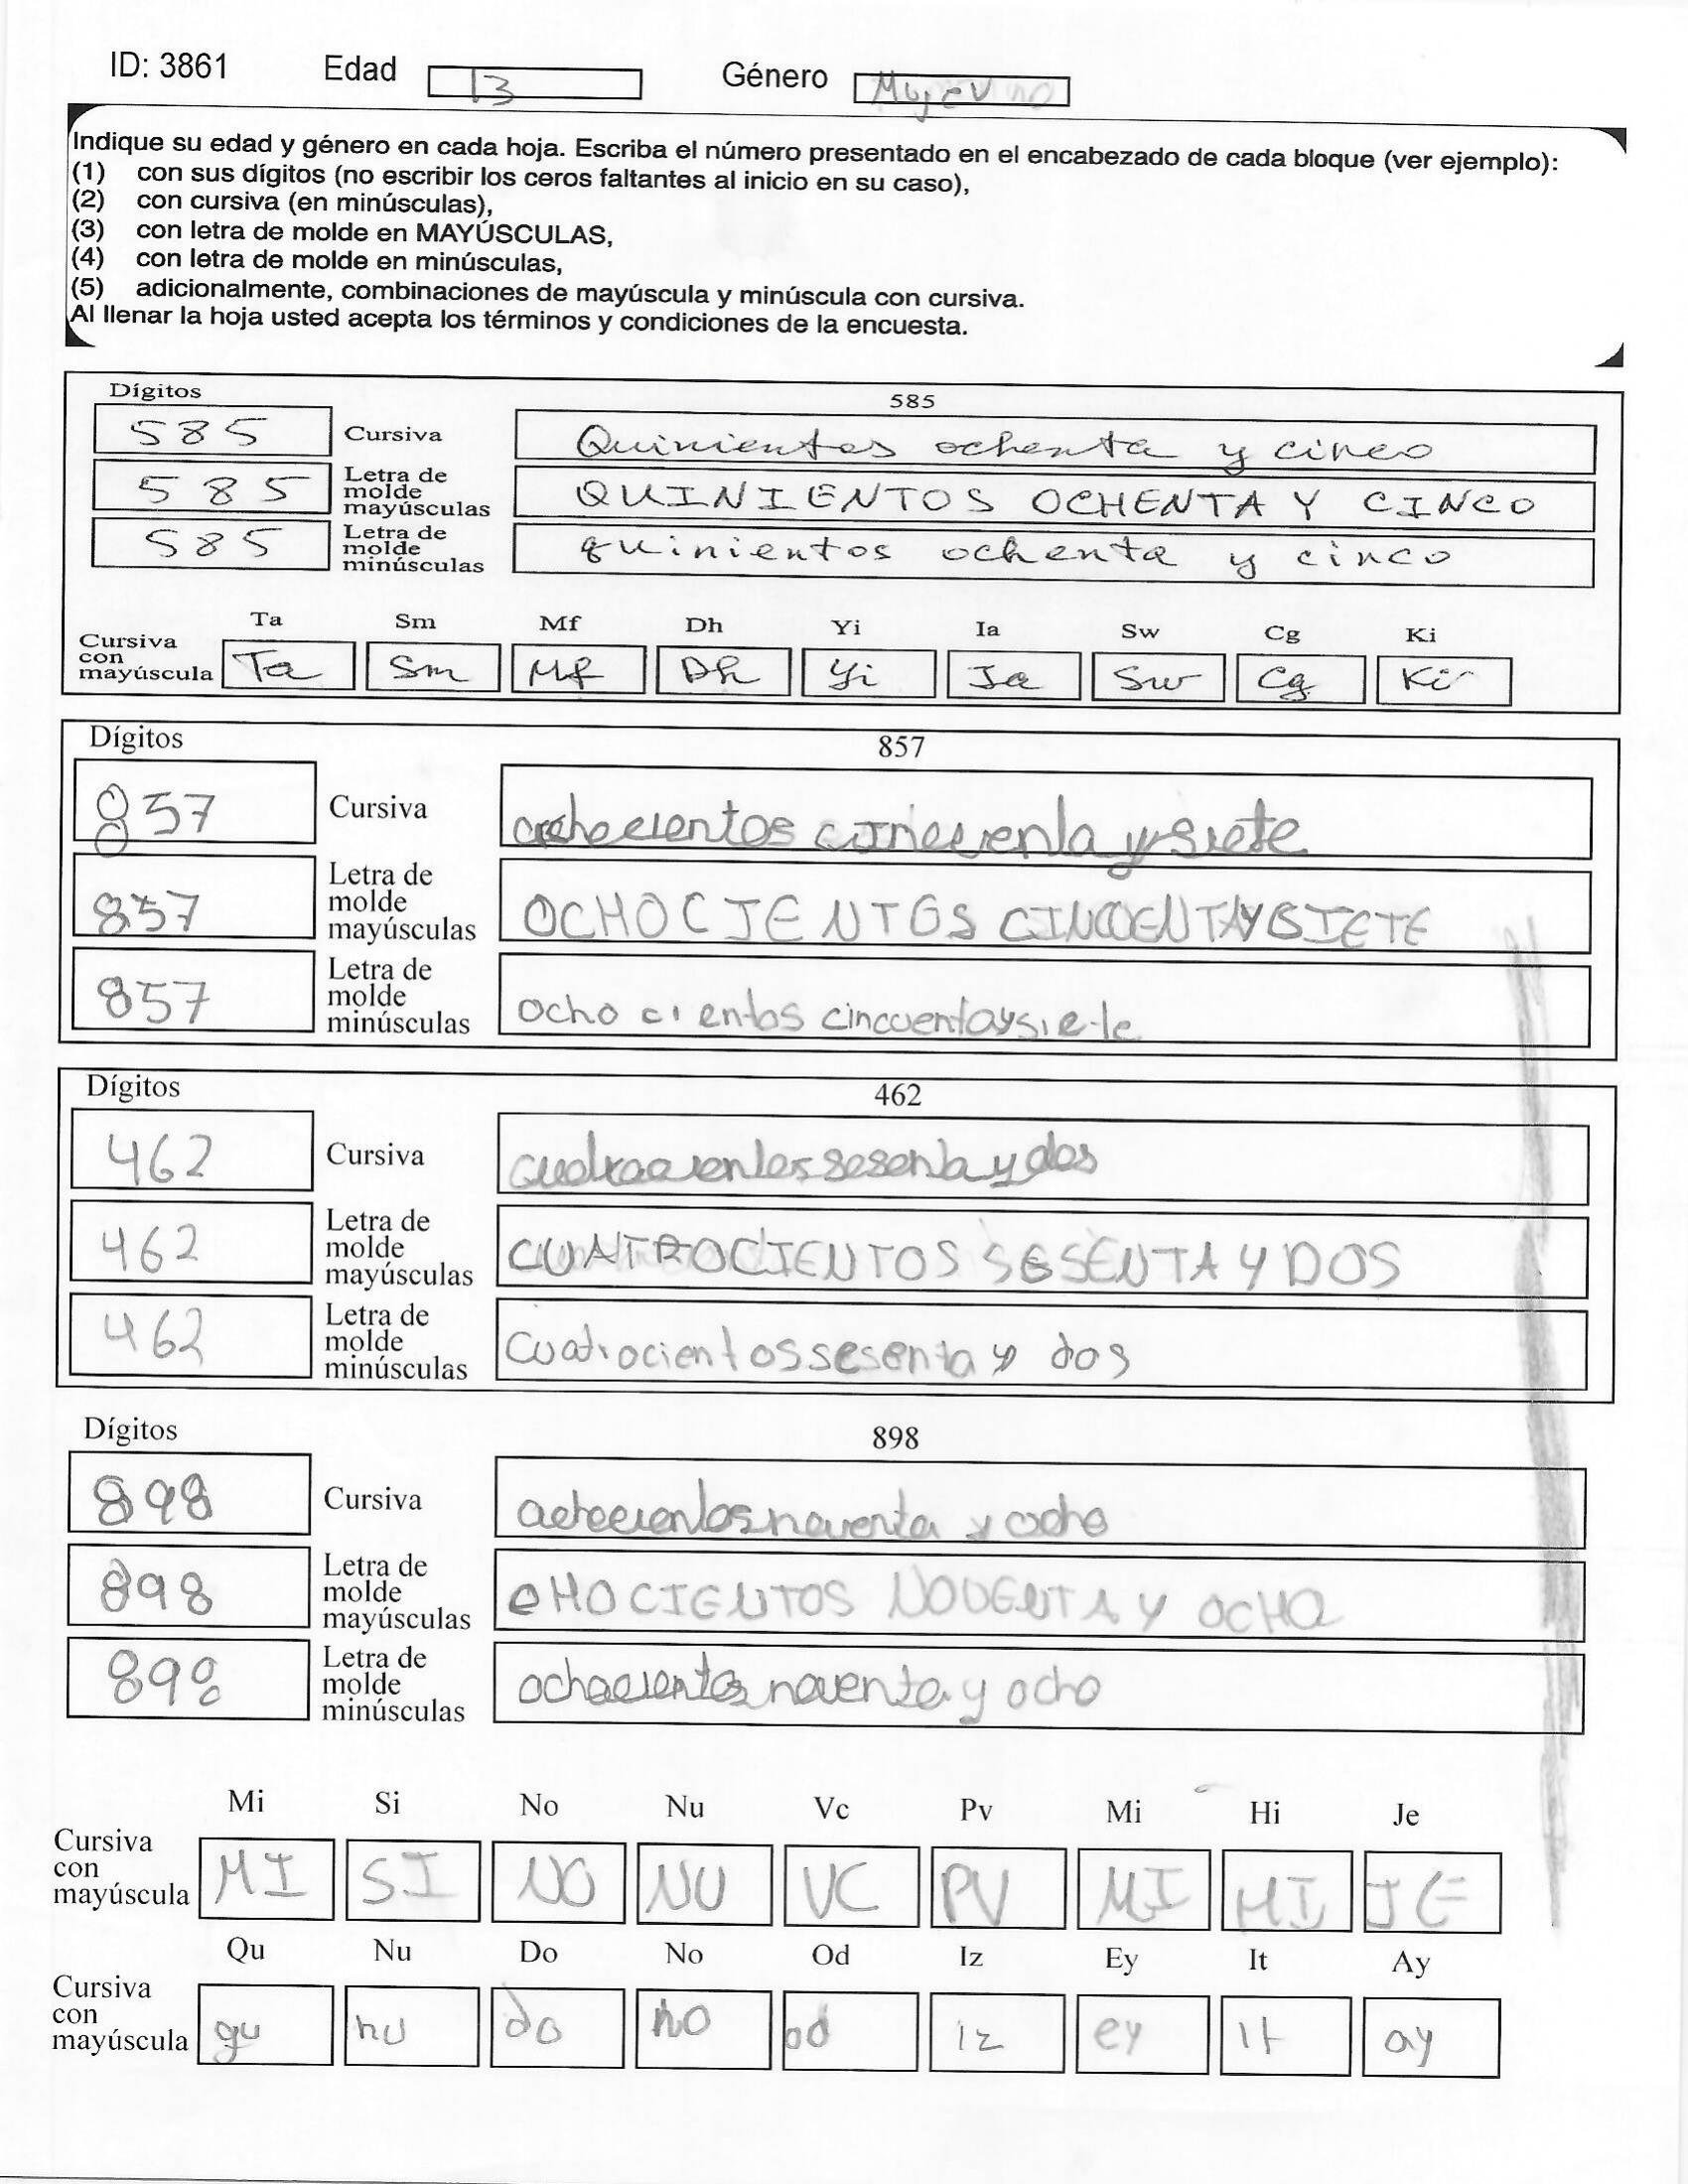 ID: 3861 Edad 13 Género Mujer
Indique su edad y género en cada hoja. Escriba el número presentado en el encabezado de cada bloque (ver ejemplo):
(1) con sus dígitos (no escribir los ceros faltantes al inicio en su caso),
(2) con cursiva (en minúsculas),
(3) con letra de molde en MAYÚSCULAS,
(4) con letra de molde en minúsculas,
(5) adicionalmente, combinaciones de mayúscula y minúscula con cursiva.
Al llenar la hoja usted acepta los términos y condiciones de la encuesta.
Dígitos 585
585 Cursiva Quinientos ochenta y cinco
585 Letra de molde mayúsculas QUINIENTOS OCHENTA Y CINCO
585 Letra de molde minúsculas quinientos ochenta y cinco
Ta Sm Mf Dh Yi Ia Sw Cg Ki
Cursiva con mayúscula Ta Sm Mf Dh Yi Ia Sw Cg Ki
Dígitos 857
857 Cursiva ochocientos cincuenta y siete
857 Letra de molde mayúsculas OCHOCIENTOS CINCOENTAYSIETE
857 Letra de molde minúsculas ocho cientos cincuentaysiete
Dígitos 462
462 Cursiva cuatrocientos sesenta y dos
462 Letra de molde mayúsculas CUATROCIENTOS SESENTA Y DOS
462 Letra de molde minúsculas cuatrocientos sesenta y dos
Dígitos 898
898 Cursiva ochocientos noventa y ocho
898 Letra de molde mayúsculas OHOCIENTOS NOVENTA Y OCHO
898 Letra de molde minúsculas ochocientos noventa y ocho
Mi Si No Nu Vc Pv Mi Hi Je
Cursiva con mayúscula MI SI NO NU VC PV MI HI JE
Qu Nu Do No Od Iz Ey It Ay
Cursiva con mayúscula qu nu do no od iz ey it ay